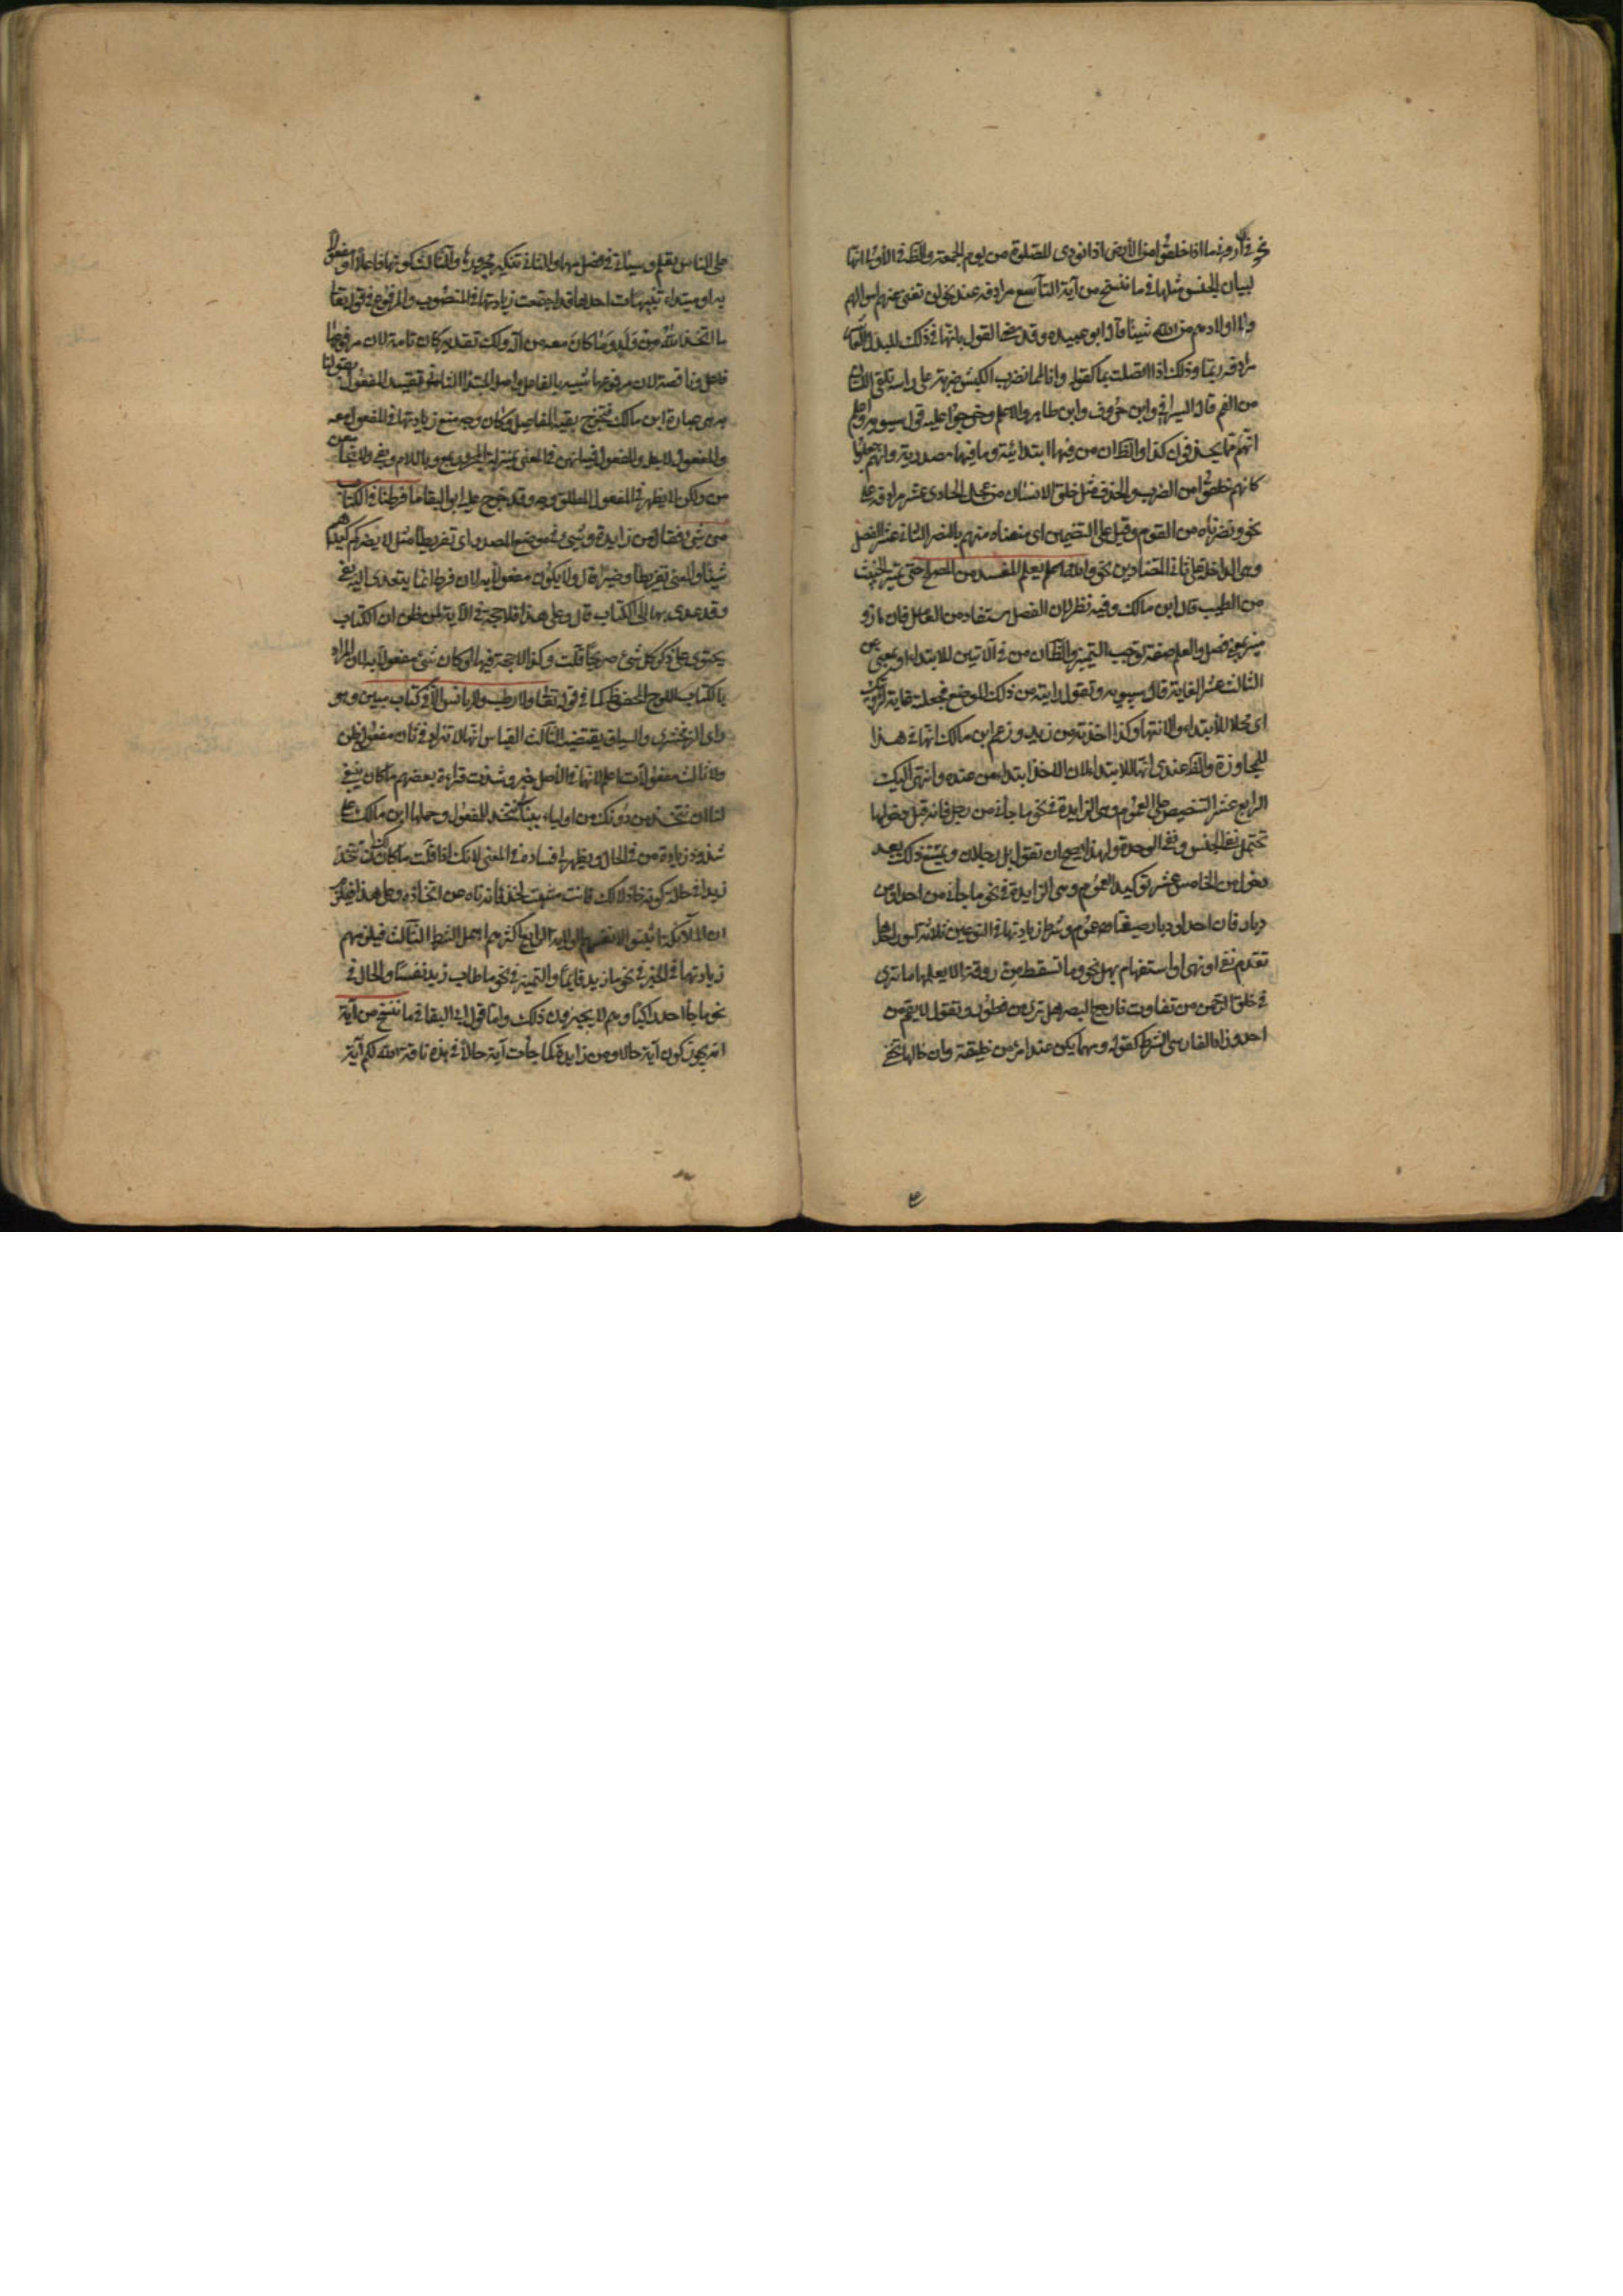 نحو في اروني ماذا خلقوا من الأرض اذا نودي للصلوة من يوم الجمعة والظ في الاولى انها
لبيان الجنس مثلها في ما ننسخ من آية التاسع مرادفة عند نحو لن تغني عنهم اموالهم
ولا اولادهم من الله شيئا قاله ابو عبيده وقد مضى القول بانها في ذلك للبدل العاشر
مرادفة ربما وذلك اذا اتصلت بما كقوله وانا لمما نضرب الكبش ضربة على راسه تلقي اللسان
من الفم قاله السيرافي وابن خروف وابن طاهر والاعلم وخرجوا عليه قول سيبويه واعلم
انهم مما يحذفون كذا والظ ان من فيهما ابتدائية وما فيهما مصدرية وانهم جعلوا
كانهم خلقوا من الضرب والحذف مثل خلق الانسان من عجل الحادي عشر مرادفة على
نحو ونصرناه من القوم وقيل على التضمين اي منعناه منهم بالنصر الثاني عشر الفصل
وهي الداخلة على ثاني المتضادين نحو والله يعلم المفسد من المصلح حتى يميز الخبيث
من الطيب قاله ابن مالك وفيه نظر لان الفصل مستفاد من العامل فان ماز و
ميز بمعنى فصل والعلم صفة توجب التمييز والظ ان من في الآيتين للابتداء او بمعنى عن
الثالث عشر الغاية قال سيبويه وتقول رايته من ذلك الموضع فجعلته غاية لرؤيتك
اي محلا للابتداء والانتهاء وكذا اخذته من زيد وزعم ابن مالك انها في هذا
للمجاوزة والظ عندي انها للابتداء لان الاخذ ابتداء من عنده وانتهى اليك
الرابع عشر التنصيص على العموم وهي الزايدة في نحو ما جاءني من رجل فانه قبل دخولها
تحتمل نفي الجنس ونفي الوحدة ولهذا يصح ان تقول بل رجلان ويمتنع ذلك بعد
دخول من الخامس عشر توكيد العموم وهي الزايدة في نحو ما جاءني من احد او من
ديار فان احدا وديارا صيغتا عموم وشرط زيادتها في النوعين ثلاثة امور احدها
تقدم نفي او نهي او استفهام بهل نحو وما تسقط من ورقة الا يعلمها ما ترى
في خلق الرحمن من تفاوت فارجع البصر هل ترى من فطور وتقول لا يقم من
احد وزاد الفارسي الشرط كقوله ومهما يكن عند امرئ من خليقة وان خالها تخفى
على الناس تعلم وسيأتي في فصل مهما والثاني تنكير مجرورها والثالث كونها فاعلا او مفعولا
به او مبتداء تنبيهات احدها قد اجتمعت زيادتها في المنصوب والمرفوع في قوله تعالى
ما اتخذ الله من ولد وما كان معه من اله ولك تقدير كان تامة لان مرفوعها
فاعل وناقصة لان مرفوعها شبيه بالفاعل واصله المبتدا الثاني تقييد المفعول بقولنا
به هي عبارة ابن مالك فتخرج بقية المفاعيل وكان وجه منع زيادتها في المفعول معه
والمفعول لاجله والمفعول فيه انهن في المعنى بمنزلة المجرور بمع وباللام وبفي ولا تجامعهن
من ولكن لا يظهر في المفعول المطلق وجه وقد خرج عليه ابو البقا ما فرطنا في الكتاب
من شيء فقال من زايدة وشيء في موضع المصدر اي تفريطا مثل لا يضركم كيدهم
شيئا والمعنى تفريطا وضيرا قال ولا يكون مفعولا به لان فرط انما يتعدى اليه بفي
وقد عدي بها الى الكتاب قال وعلى هذا فلا حجة في الآية لمن ظن ان الكتاب
يحتوي على ذكر كل شيء صريحا قلت وكذا لا حجة فيها لو كان شيء مفعولا به لان المراد
بالكتاب اللوح المحفوظ كما في قوله تعالى ولا رطب ولا يابس الا في كتاب مبين وهو
راي الزمخشري والسياق يقتضيه الثالث القياس انها لا تزاد في ثاني مفعولي ظن
ولا ثالث مفعولات اعلم لانها في الأصل خبر وشذت قراءة بعضهم ما كان ينبغي
لنا ان نتخذ من دونك من اولياء ببناء نتخذ للمفعول وحملها ابن مالك على
شذوذ زيادة من في الحال ويظهر لي فساده في المعنى لانك اذا قلت ما كان لك ان تتخذ
زيدا في حالة كونه خاذلا لك فانت مثبت لخذلانه ناه عن اتخاذه وعلى هذا فيلزم
ان الملائكة اثبتوا لانفسهم الولاية الرابع اكثرهم اهمل الشرط الثالث فيلزمهم
زيادتها في الخبر في نحو ما زيد قايما والتمييز في نحو ما طاب زيد نفسا والحال في
نحو ما جاء احد راكبا وهم لا يجيزون ذلك واما قول ابي البقا في ما ننسخ من آية
انه يجوز كون آية حالا ومن زايدة كما جاءت آية حالا في هذه ناقة الله لكم آية